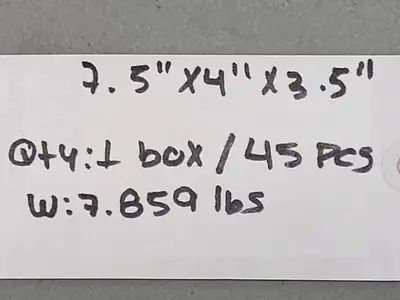 7.5" X4" X3.5"
Qty:1 box / 45 PCS
W:7.859 lbs